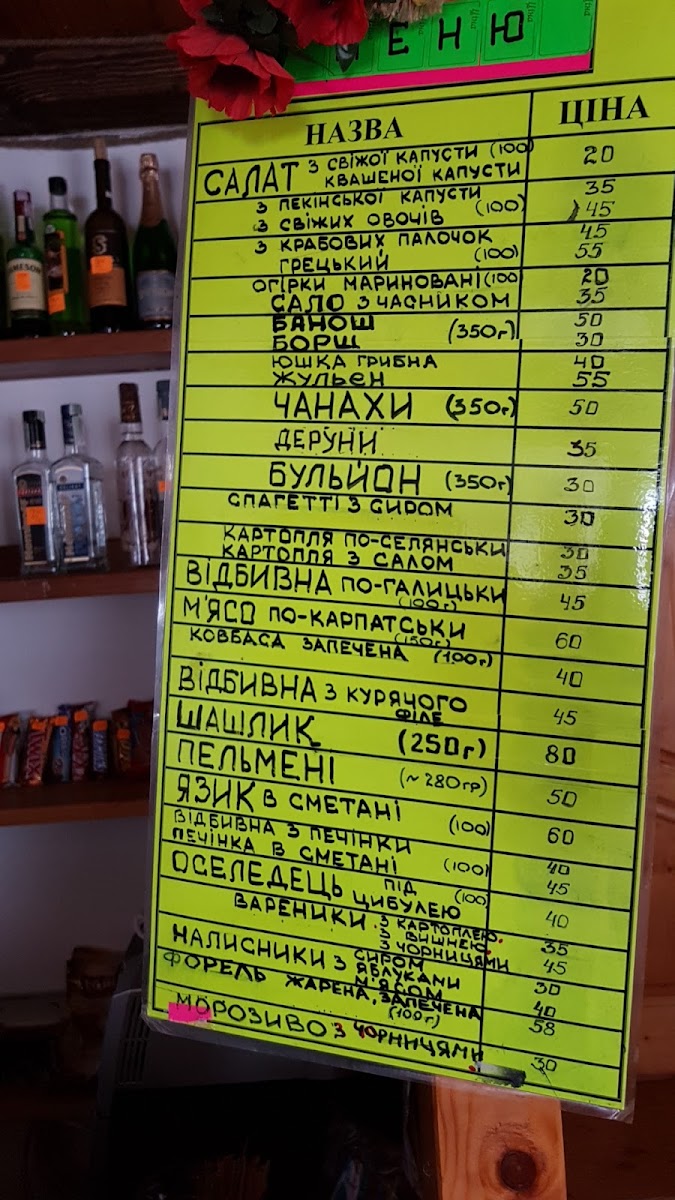 ЕНЮ
НАЗВА ЦІНА
САЛАТ З СВІЖОЇ КАПУСТИ (100) 20
КВАШЕНОЇ КАПУСТИ
З ПЕКІНСЬКОЇ КАПУСТИ 35
З СВІЖИХ ОВОЧІВ (100) 45
З КРАБОВИХ ПАЛОЧОК 45
ГРЕЦЬКИЙ (100) 55
ОГІРКИ МАРИНОВАНІ (100 20
САЛО З ЧАСНИКОМ 35
БАНОШ (350г) 50
БОРЩ 30
ЮШКА ГРИБНА 40
ЖУЛЬЕН 55
ЧАНАХИ (350г) 50
ДЕРУНИ 35
БУЛЬЙОН (350г) 30
СПАГЕТТІ З СИРОМ 30
КАРТОПЛЯ ПО-СЕЛЯНСЬКИ 30
КАРТОПЛЯ З САЛОМ 35
ВІДБИВНА ПО-ГАЛИЦЬКИ 45
(100г)
М'ЯСО ПО-КАРПАТСЬКИ 60
(150г)
КОВБАСА ЗАПЕЧЕНА (100г) 40
ВІДБИВНА З КУРЯЧОГО 45
ФІЛЕ
ШАШЛИК (250г) 80
ПЕЛЬМЕНІ (~280гр) 50
ЯЗИК В СМЕТАНІ (100) 60
ВІДБИВНА З ПЕЧІНКИ 40
ПЕЧІНКА В СМЕТАНІ (100) 45
ОСЕЛЕДЕЦЬ ПІД (100) 40
ЦИБУЛЕЮ
ВАРЕНИКИ З КАРТОПЛЕЮ 35
З ВИШНЕЮ
З ЧОРНИЦЯМИ 45
НАЛИСНИКИ З СИРОМ 30
ЯБЛУКАМИ
М'ЯСОМ 40
ФОРЕЛЬ ЖАРЕНА, ЗАПЕЧЕНА 58
(100г)
МОРОЗИВО З ЧОРНИЦЯМИ 30
JAMESON